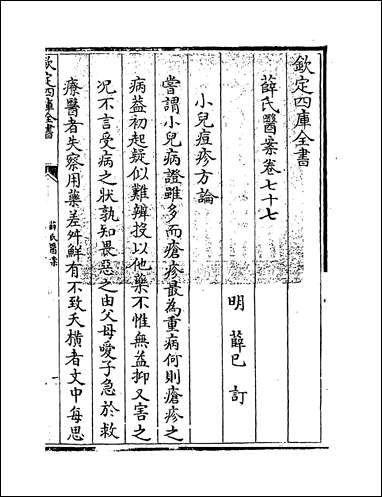 欽定四庫全書
薛氏醫案卷七十七
明 薛已 訂
小兒痘疹方論
嘗謂小兒病證雖多而瘡疹最為重病何則瘡疹之
病葢初起疑似難辨投以他藥不惟無益抑又害之
況不言受病之狀孰知畏惡之由父母愛子急於救
療醫者失察用藥差舛鮮有不致夭横者文中每思
欽定四庫全書
薛氏醫案